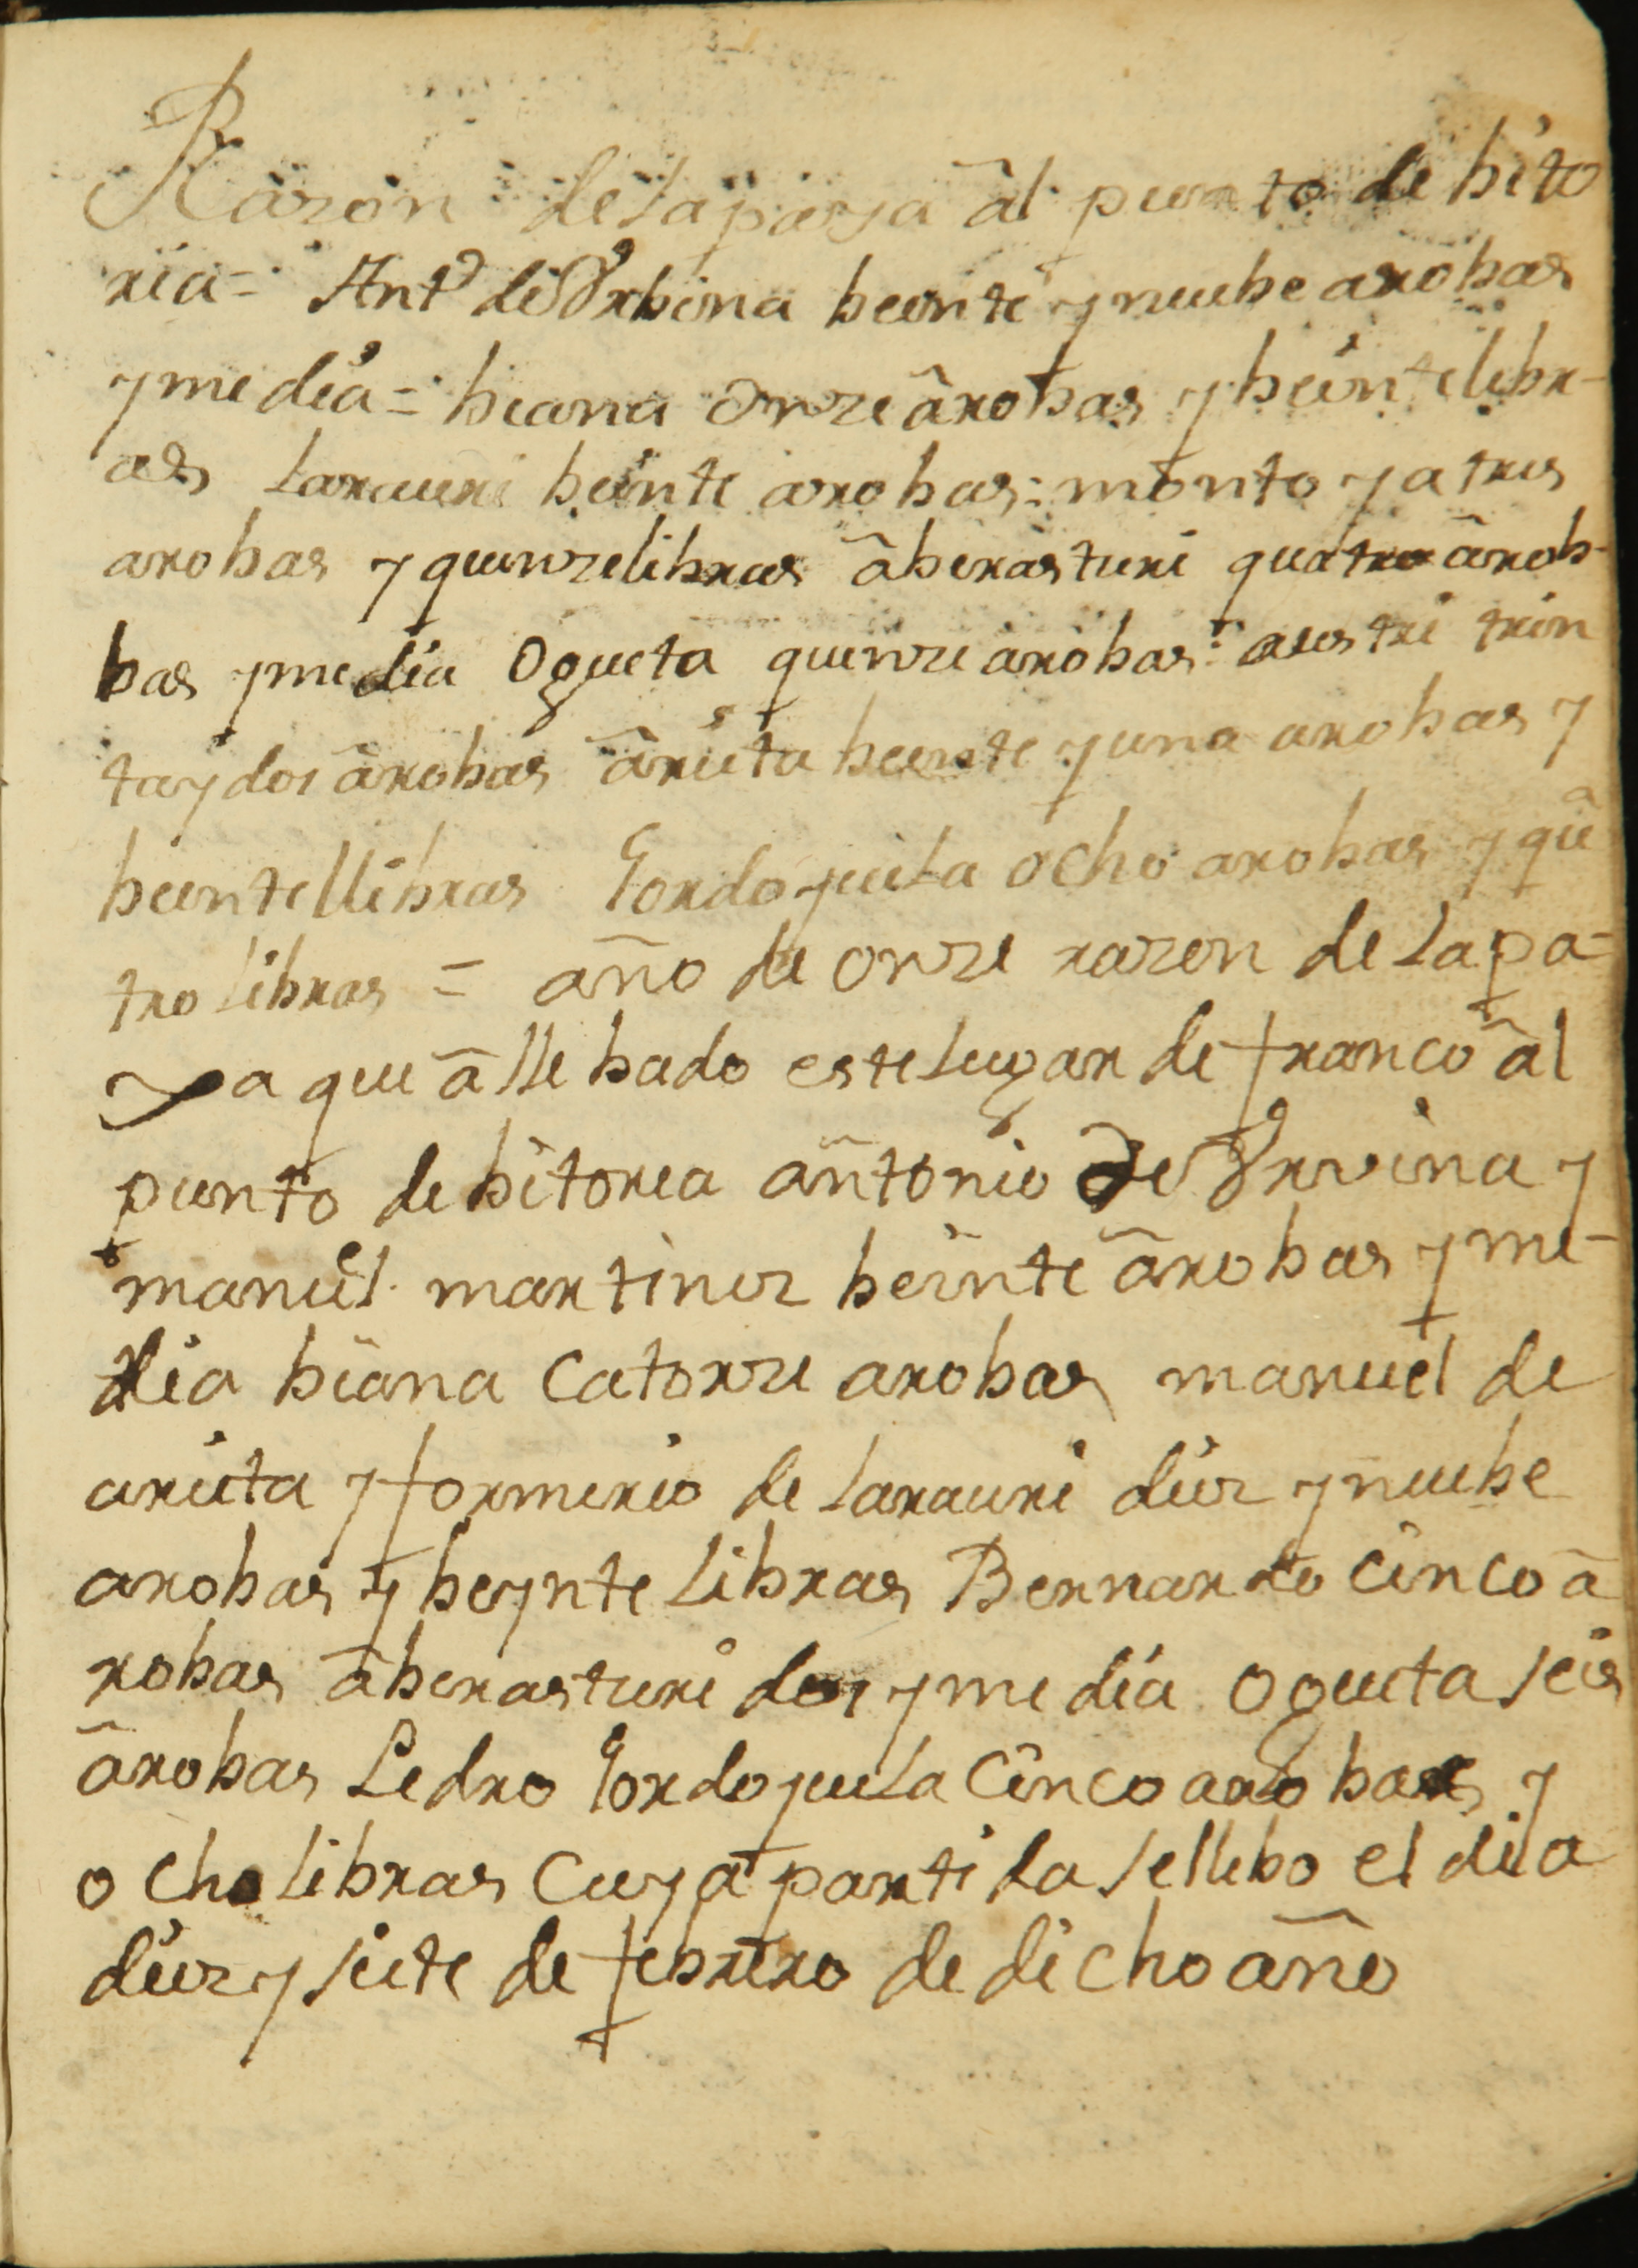 Razon de la paya âl punto de bito
ria = Antº de Urbina beinte y nuebe arobas
y media = biana onze ârobas y beinte libr-
as Larauri beinte arobas: montoya tres
arobas y quinze libras âberasturi quatro ârob-
bas y media Ogueta quinze arobas: aiestri trein
ta y dos ârobas ârieta beinte y una arobas y
beinte llibras Gordojuela ocho arobas y quª
tro libras = año de onze razon de la pa-
ya que â llebado este lugar de franco âl
punto de bitoria antonio de Urvina y
manuel martinez beinte ârobas y me-
dia biana Catorze arobas manuel de
arieta y formerio de Larauri diez y nuebe
arobas y beynte Libras Bernardo cinco â
robas âberasturi dos y media ogueta seis
ârobas Pedro Gordojuela Cinco arobas y
ocho libras Cuya partida se llebo el dia
diez y siete de febrero de dicho año